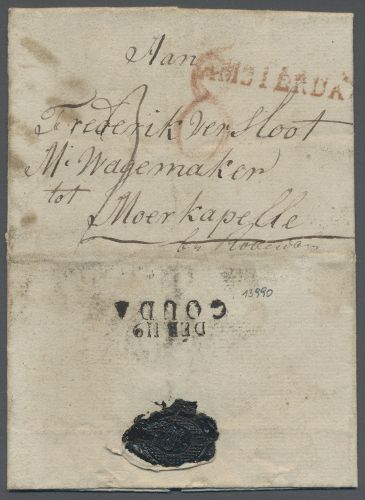 Aan
AMSTERDA
Frederik Ver Sloot
Mr Wagemaker
tot
Moerkapelle
13990
DEB 119
GOUDA